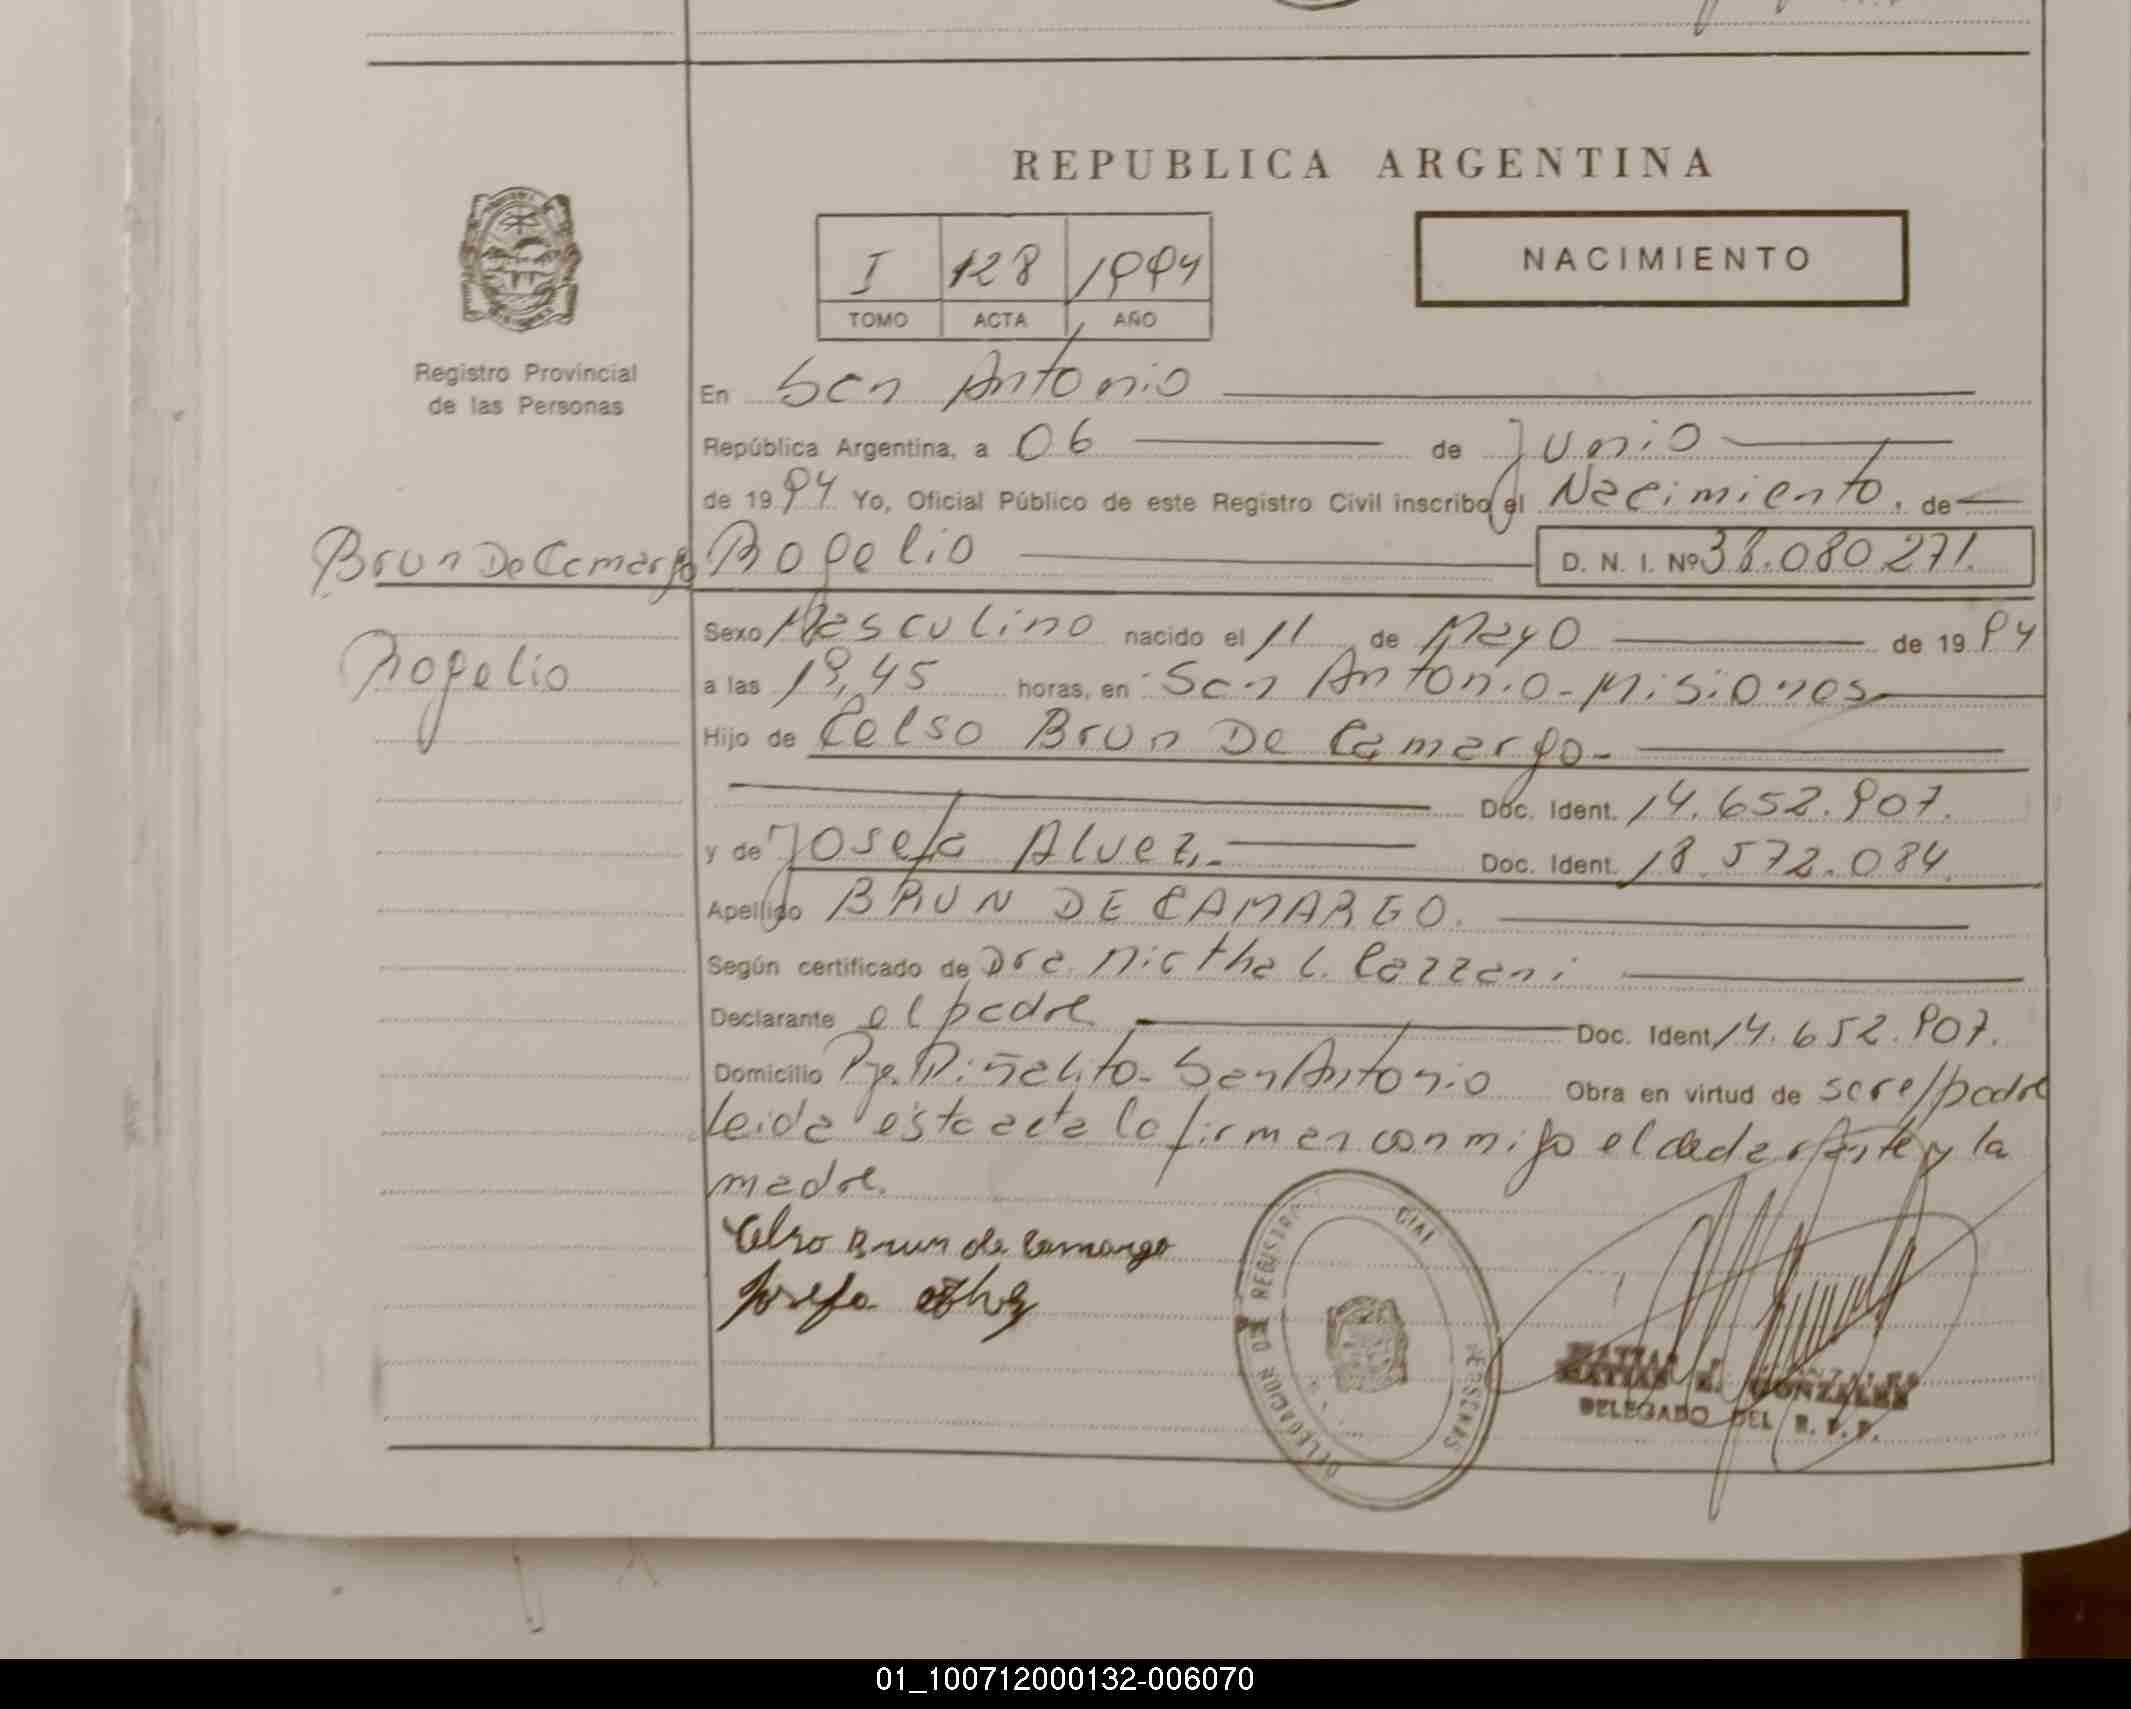 REPUBLICA ARGENTINA
I 128 1994
TOMO ACTA AÑO
NACIMIENTO
Registro Provincial
de las Personas
En San Antonio
República Argentina, a 06 de Junio
de 1994 Yo, Oficial Público de este Registro Civil inscribo el Nacimiento, de
Brun De Camargo Rogelio D. N. I. Nº 38.080.271.
Rogelio
Sexo Masculino nacido el 11 de Mayo de 1994
a las 19,45 horas, en San Antonio - Misiones
Hijo de Celso Brun De Camargo-
Doc. Ident. 14.652.907.
y de Josefa Alvez.- Doc. Ident. 18.572.084.
Apellido BRUN DE CAMARGO.
Según certificado de Dra. Mirtha L. Cazzani
Declarante el padre Doc. Ident 14.652.907.
Domicilio Pje. Piñalito - San Antonio Obra en virtud de ser el padre
leida esta acta la firman conmigo el declarante y la
madre.
Celso Brun de Camargo
Josefa Alvez
DELEGACION DEL REGISTRO CIAL PERSONAS
MATIAS E. GONZALEZ
DELEGADO DEL R. P. P.
01_100712000132-006070